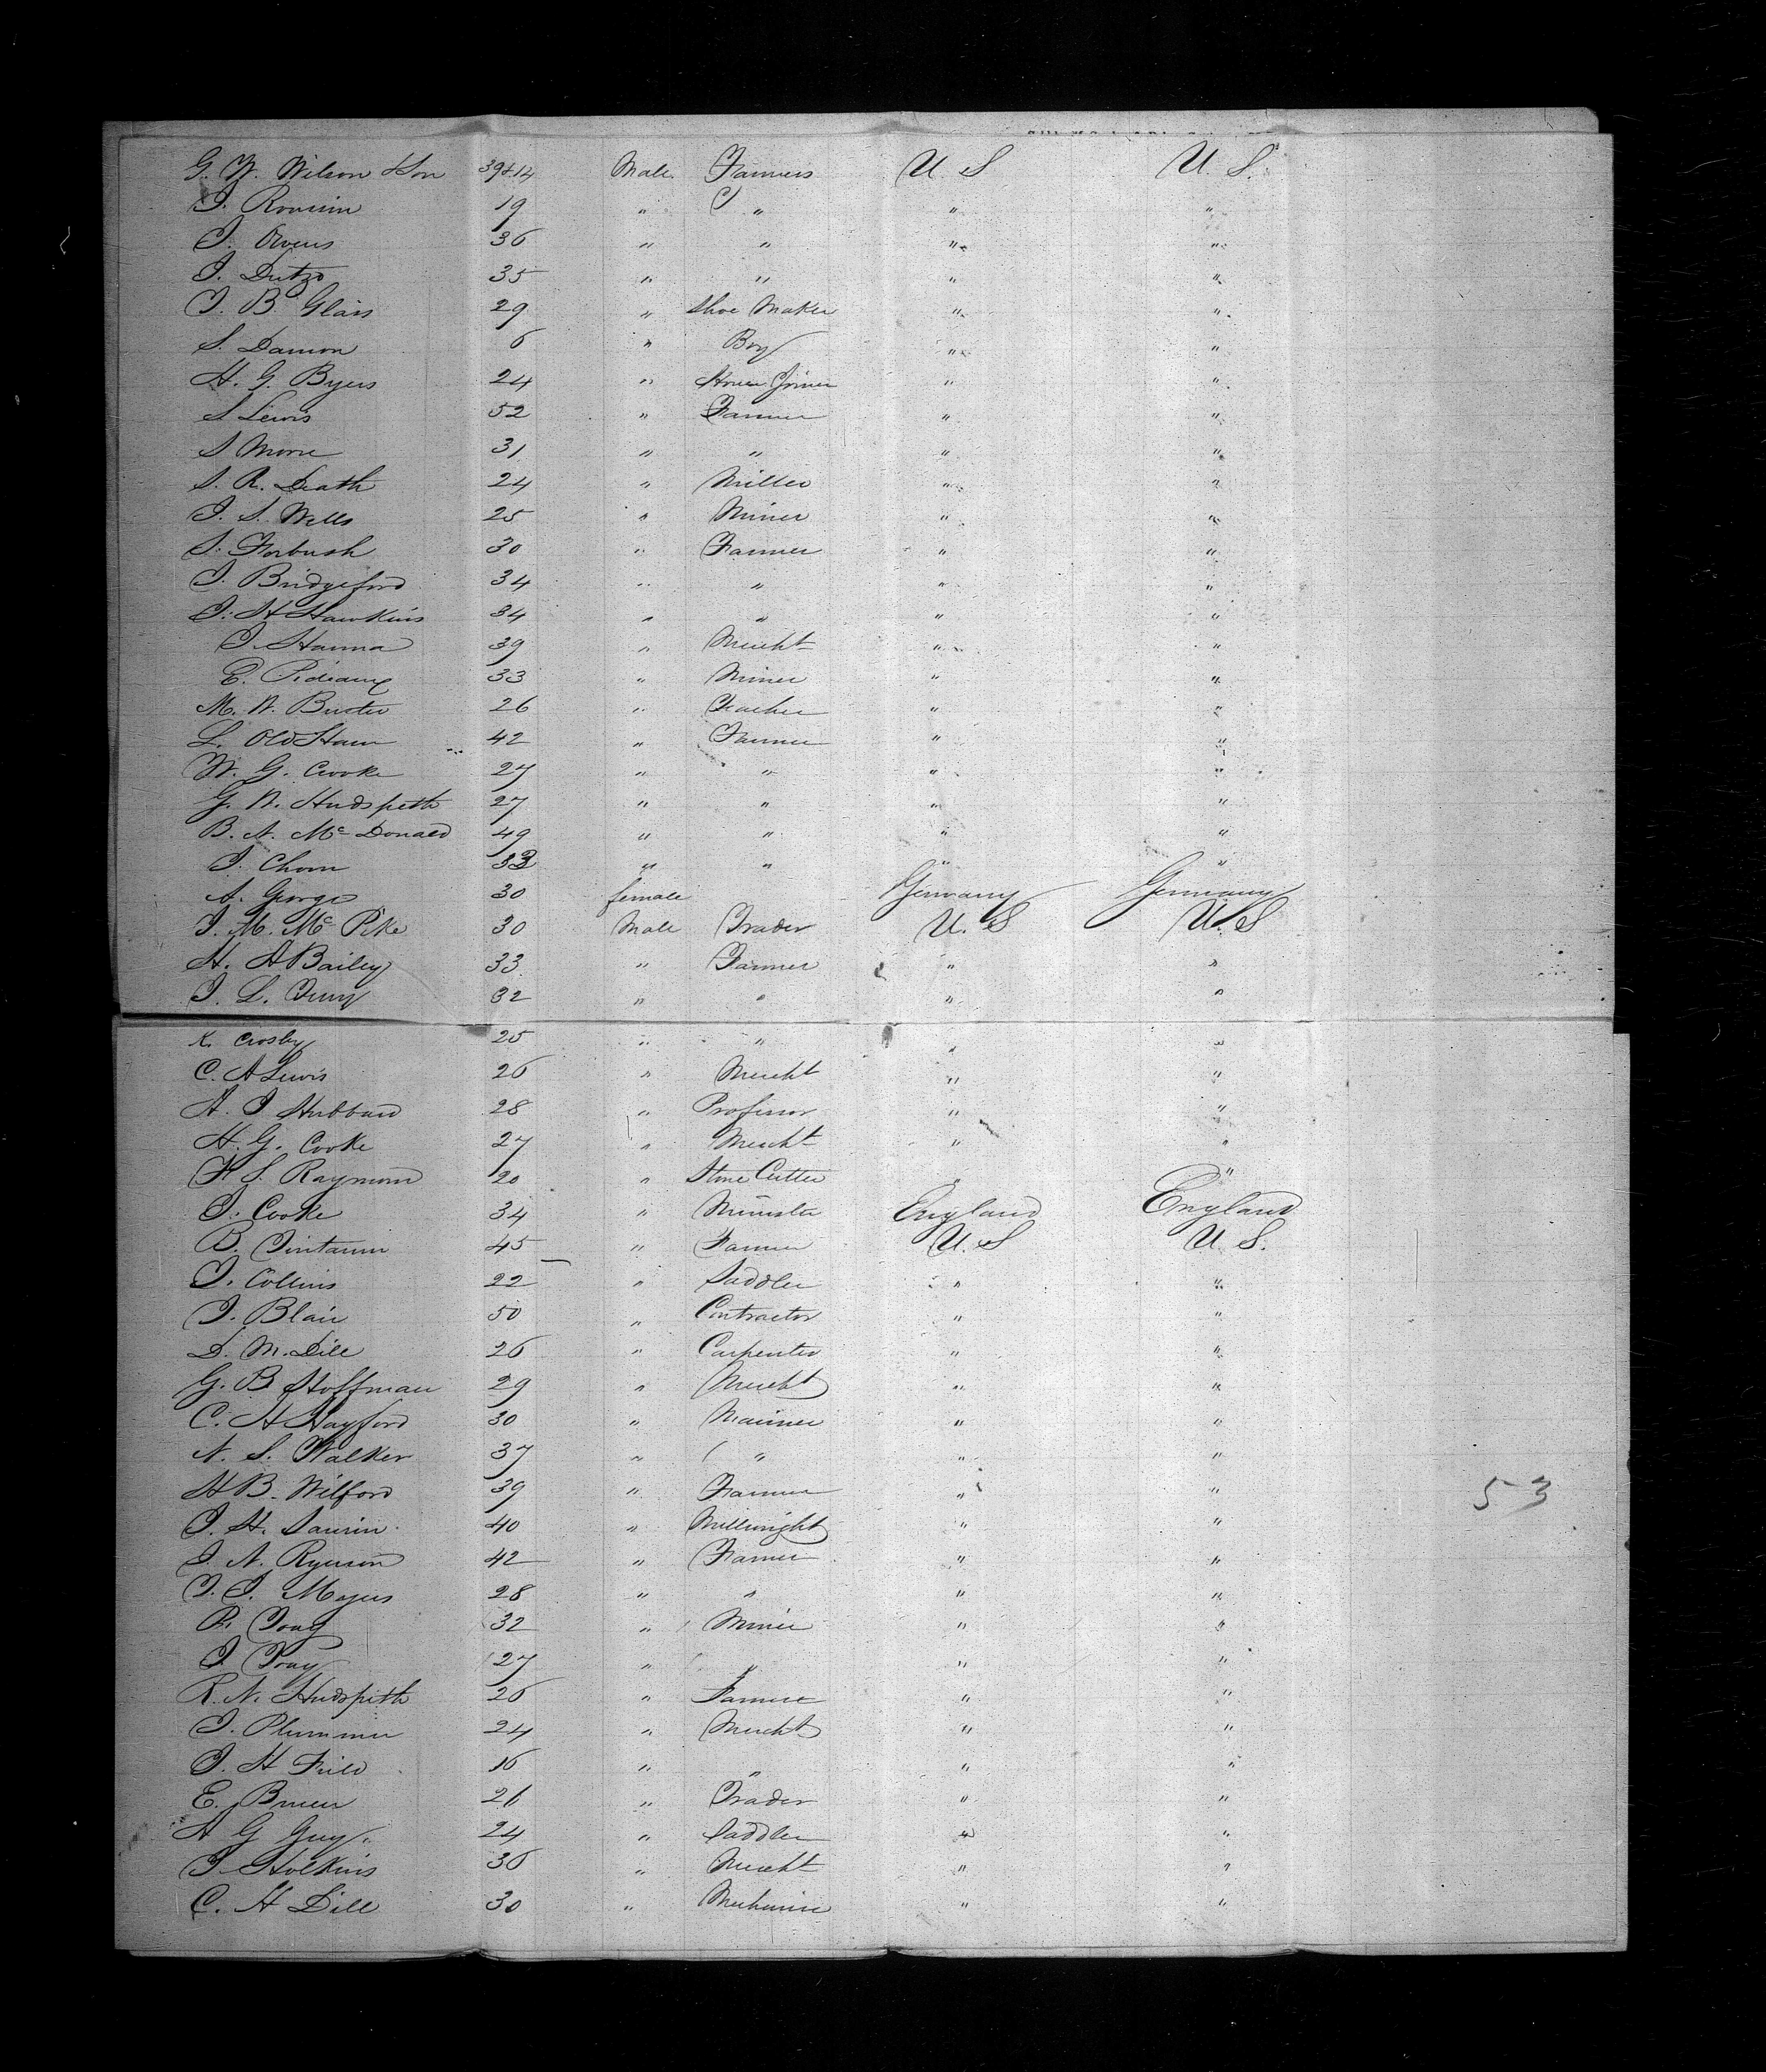 G. W. Wilson & Son 39+14 Male Farmers U. S U. S.
J. 19 " " " "
J. Owens 36 " " " "
J. Dutzo 35 " " " "
J. B Glass 29 " Shoe Maker " "
S. Damon 6 " Boy " "
H. G. Byers 24 " House Joiner " "
S Lewis 52 " Farmer " "
S Morse 31 " " " "
S. R. Death 24 " Miller " "
J. S. Wells 25 " Miner " "
S. Forbush 30 " Farmer " "
J. Bridgeford 34 " " " "
J. H Hawkins 34 " " " "
J. Hanna 39 " Mercht " "
E. 33 " Miner " "
M. W. Buster 26 " Teacher " "
L. Old Ham 42 " Farmer " "
W. G. Cooke 27 " " " "
G. W. Hudspeth 27 " " " "
B. A. Mc Donald 49 " " " "
J. Chorn 33 " " " "
A. George 30 female Germany Germany
J. M. Mc Pike 30 Male Trader U. S U. S
H. A Bailey 33 " Farmer " "
J. L. Terry 32 " " " "
K. Crosby 25 " " " "
C. A Lewis 26 " Mercht " "
A. J Hubbard 28 " Professor " "
H. G. Cooke 27 " Mercht " "
F. S. Raymond 20 " Stone Cutter " "
J. Cooke 34 " Minister England England
B. 45 " Farmer U. S U. S.
J. Collins 22 " Saddler " "
J. Blair 50 " Contractor " "
D. M. Dill 26 " Carpenter " "
G. B Hoffman 29 " Mercht " "
C. H Hayford 30 " Mariner " "
N. S. Walker 37 " " " "
H B. Wilford 39 " Farmer " " 53
J. H. 40 " Millwright " "
J. N. Ryerson 42 " Farmer " "
J. J. Meyers 28 " " " "
R. Tong 32 " Miner " "
J. Tong 27 " " " "
R. N. Hudspith 26 " Farmer " "
J. Plummer 24 " Mercht " "
J. H Field 16 " " " "
E. 26 " Trader " "
A G Guy 24 " Saddler " "
J. Holkins 36 " Mercht " "
C. H Dill 30 " Mechanic " "